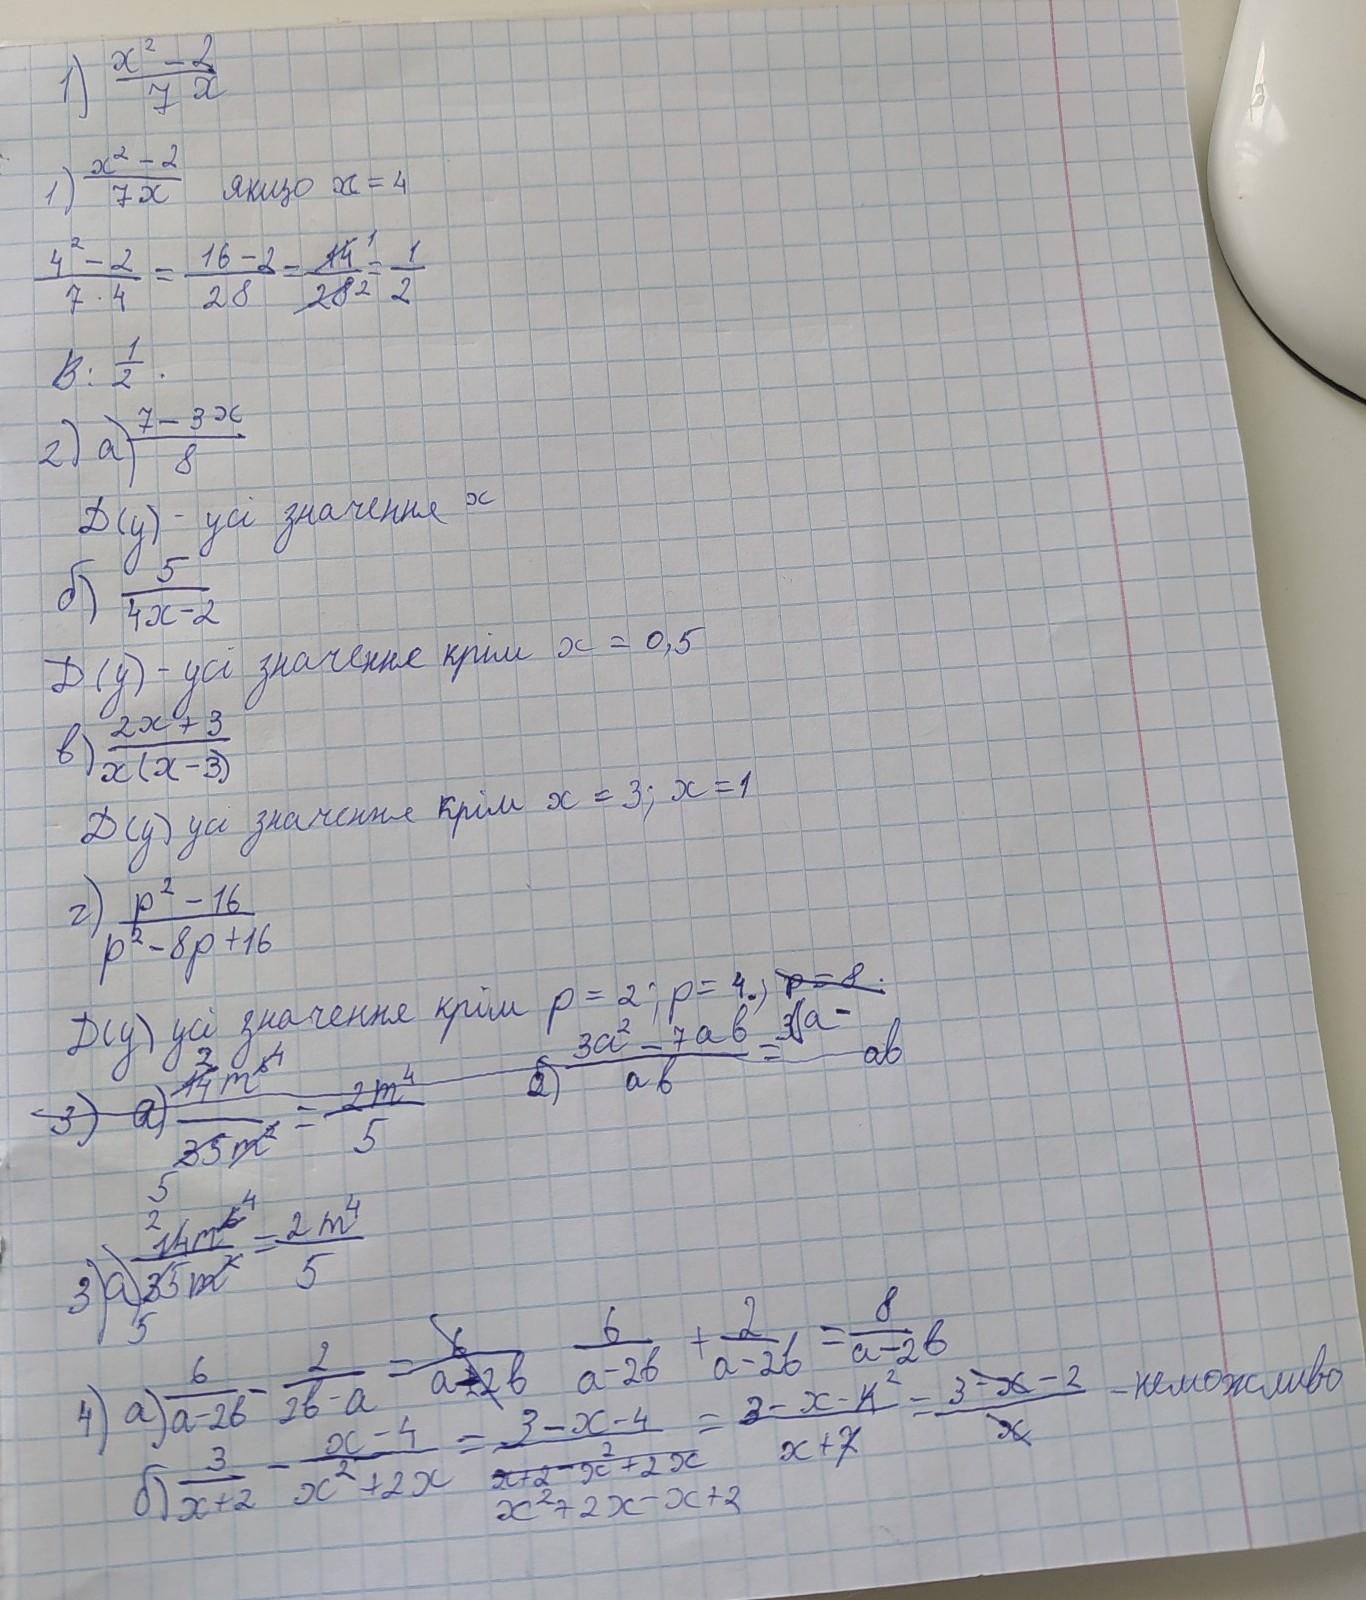 1) (x² - 2)/(7x)
1) (x² - 2)/(7x) якщо x = 4
(4² - 2)/(7 · 4) = (16 - 2)/28 = 14/28 = 1/2
В: 1/2.
2) а) (7 - 3x)/8
D(y) - усі значення x
б) 5/(4x - 2)
D(y) - усі значення крім x = 0,5
в) (2x + 3)/(x(x - 3))
D(y) усі значення крім x = 3; x = 1
г) (p² - 16)/(p² - 8p + 16)
D(y) усі значення крім p = 2; p = 4; p = 8.
3) а) 14m⁶/35m² = 2m⁴/5 2) (3a² - 7ab)/(ab) =
3) а) 14m⁶/35m² = 2m⁴/5
4) а) 6/(a - 2b) - 2/(2b - a) = 6/(a - 2b) 6/(a - 2b) + 2/(a - 2b) = 8/(a - 2b)
б) 3/(x + 2) - (x - 4)/(x² + 2x) = (3 - x - 4)/(x² + 2x - x + 2) = (3 - x - 4²)/(x + 7) = (3 - x - 2)/x - неможливо